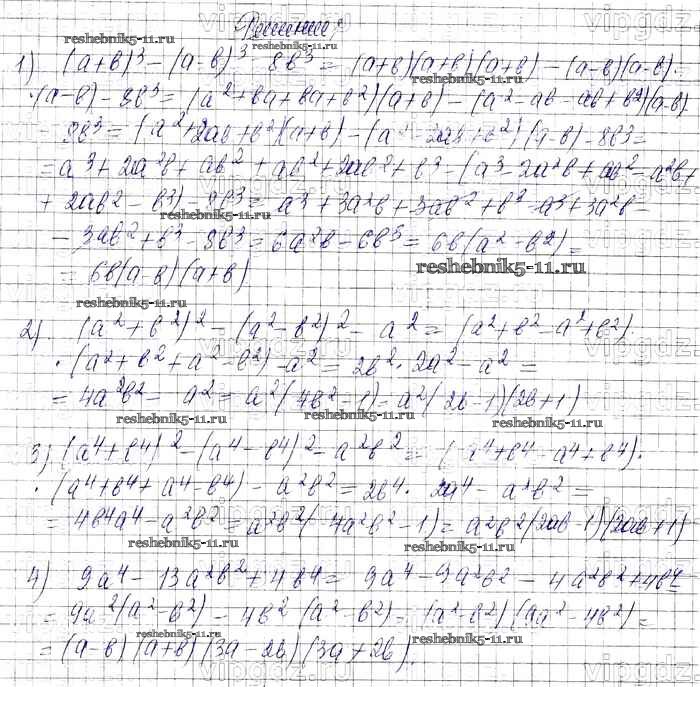 Решение:
1) (a+b)³ - (a-b)³ - 8b³ = (a+b)(a+b)(a+b) - (a-b)(a-b)·
·(a-b) - 8b³ = (a²+ba+ba+b²)(a+b) - (a²-ab-ab+b²)(a-b)
- 8b³ = (a²+2ab+b²)(a+b) - (a²-2ab+b²)(a-b) - 8b³ =
= a³ + 2a²b + ab² + ab² + 2ab² + b³ - (a³ - 2a²b + ab² - a²b +
+ 2ab² - b³) - 8b³ = a³ + 3a²b + 3ab² + b³ - a³ + 3a²b
- 3ab² + b³ - 8b³ = 6a²b - 6b³ = 6b(a² - b²) =
= 6b(a-b)(a+b)
2) (a²+b²)² - (a²-b²)² - a² = (a²+b²-a²+b²)·
·(a²+b²+a²-b²) - a² = 2b² · 2a² - a² =
= 4a²b² - a² = a²(4b²-1) = a²(2b-1)(2b+1)
3) (a⁴+b⁴)² - (a⁴-b⁴)² - a²b² = (a⁴+b⁴-a⁴+b⁴)·
·(a⁴+b⁴+a⁴-b⁴) - a²b² = 2b⁴ · 2a⁴ - a²b² =
= 4b⁴a⁴ - a²b² = a²b²(4a²b²-1) = a²b²(2ab-1)(2ab+1)
4) 9a⁴ - 13a²b² + 4b⁴ = 9a⁴ - 9a²b² - 4a²b² + 4b⁴ =
= 9a²(a²-b²) - 4b²(a²-b²) = (a²-b²)(9a²-4b²) =
= (a-b)(a+b)(3a-2b)(3a+2b).
reshebnik5-11.ru
vipgdz.com